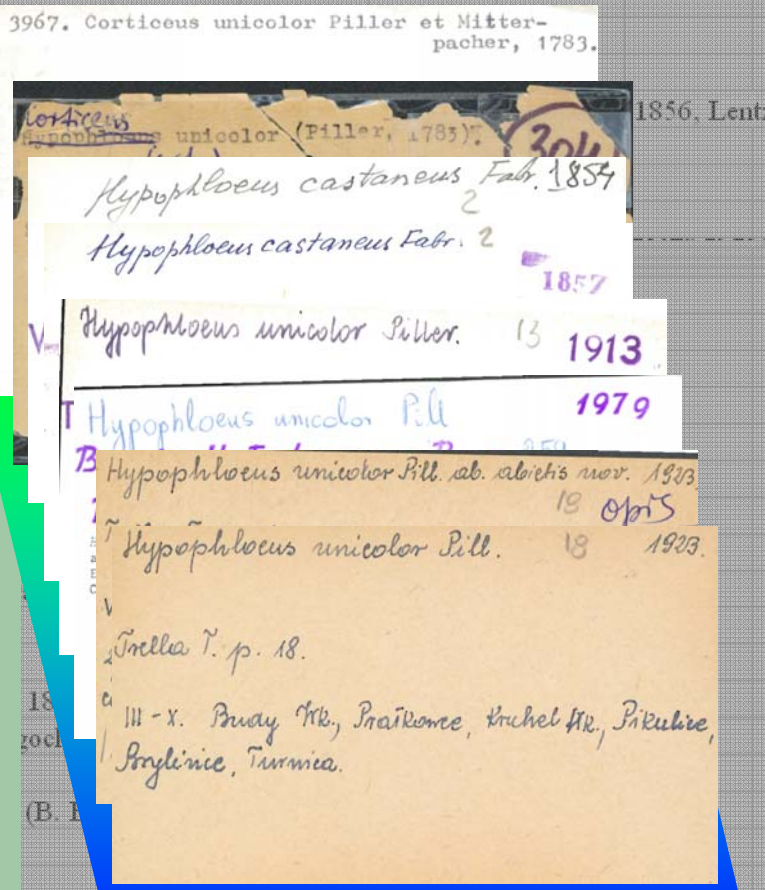 3967. Corticeus unicolor Piller et Mitter-
pacher, 1783.
1856, Lentz
Corticeus
Hypophloeus unicolor (Piller, 1783).
304
Hypophloeus castaneus Fabr. 1854
2
Hypophloeus castaneus Fabr. 2
1857
Hypophloeus unicolor Piller. 13 1913
Hypophloeus unicolor Pill 1979
Hypophloeus unicolor Pill. ab. abietis nov. 1923
18 opis
Hypophloeus unicolor Pill. 18 1923.
Trella T. p. 18.
III-X. Buay Wk., Prałkowce, Kruhel Wk., Pikulice,
Brylińce, Turnica.
(B.